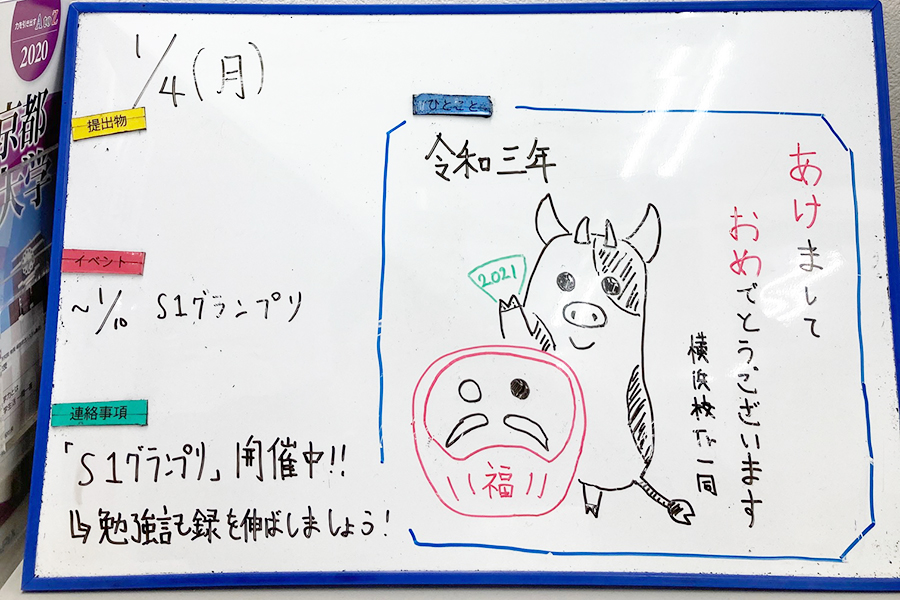 力を引き出す AtoZ
2020
京都
大学
1/4(月)
提出物
イベント
～1/10 S1グランプリ
連絡事項
「S1グランプリ」開催中!!
↳勉強記録を伸ばしましょう!
ひとこと
令和三年
あけまして
おめでとうございます
横浜校TV一同
2021
福